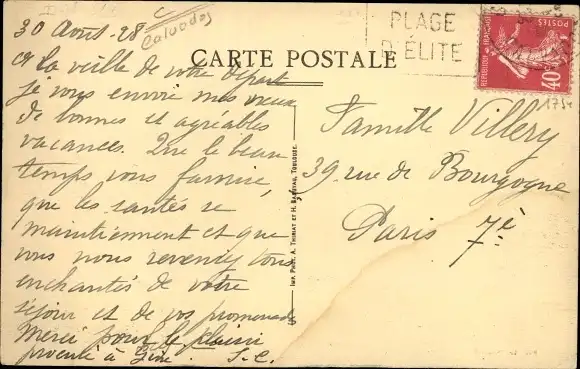 30 Août - 28
Calvados
PLAGE
D'ÉLITE
POSTES
REPUBLIQUE FRANÇAISE
40c
CARTE POSTALE
A la veille de votre départ
je vous envoie mes vœux
de bonnes et agréables
vacances. Que le beau
temps vous favorise,
que les santés se
maintiennent et que
vous nous reveniez tous
enchantés de votre
séjour et de vos promenades
Merci pour le plaisir
procuré à
S.C.
Famille Villery
39 rue de Bourgogne
Paris 7è